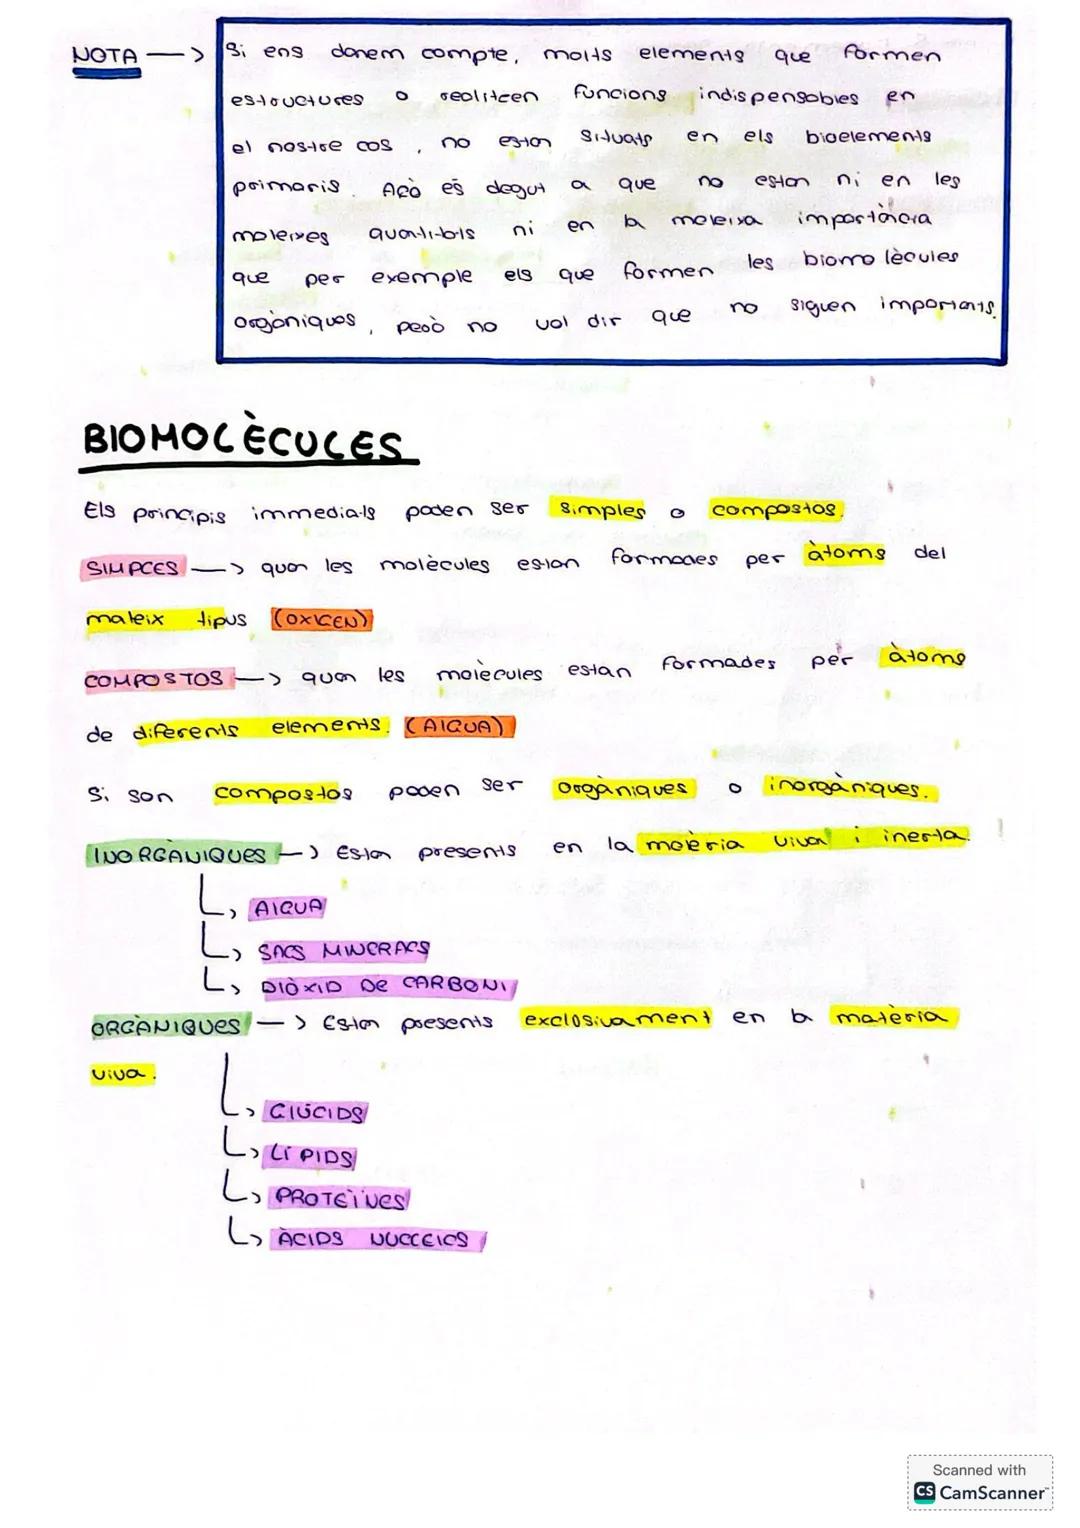 NOTA —> Si ens donem compte, molts elements que formen
estructures o realitzen funcions indispensables en
el nostre cos, no estan situats en els bioelements
primaris. Açò és degut a que no estan ni en les
mateixes quantitats ni en la mateixa importància
que per exemple els que formen les biomolècules
orgàniques, però no vol dir que no siguen importants.
BIOMOLÈCULES
Els principis immediats poden ser simples o compostos.
SIMPLES —> quan les molècules estan formades per àtoms del
mateix tipus (OXIGEN)
COMPOSTOS —> quan les molècules estan formades per àtoms
de diferents elements. (AIGUA)
Si son compostos poden ser orgàniques o inorgàniques.
INORGÀNIQUES —> Estan presents en la matèria viva i inerta.
AIGUA
SALS MINERALS
DIÒXID DE CARBONI
ORGÀNIQUES —> Estan presents exclusivament en la matèria
viva.
GLÚCIDS
LÍPIDS
PROTEÏNES
ÀCIDS NUCLEICS
Scanned with
CS CamScanner